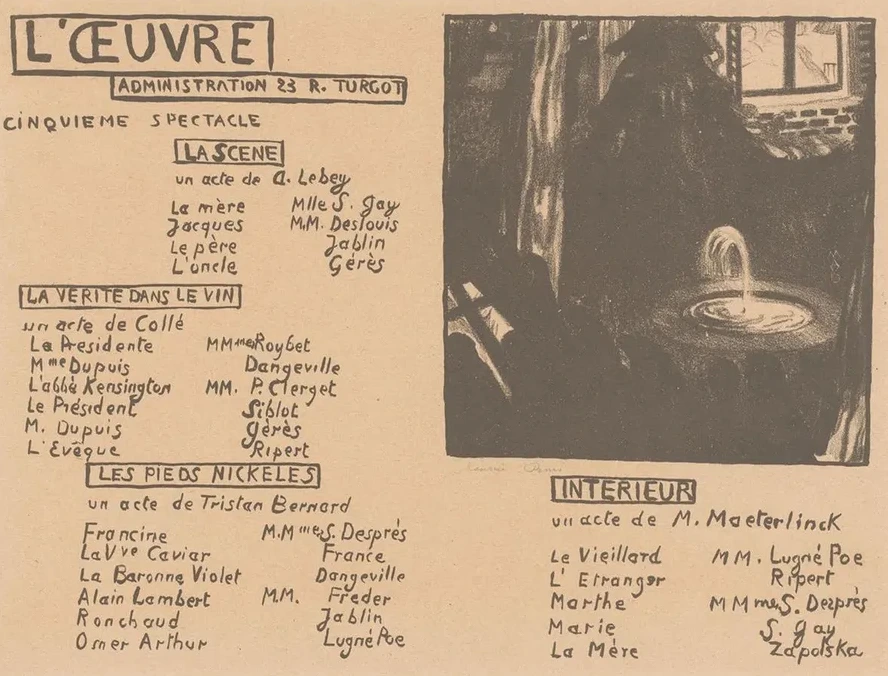 L'ŒUVRE
ADMINISTRATION 23 R. TURGOT
CINQUIEME SPECTACLE
LA SCENE
un acte de A. Lebey
La mère Mlle S. Gay
Jacques M.M. Deslouis
Le père Jablin
L'oncle Gérès
LA VERITE DANS LE VIN
un acte de Collé
La Presidente MMmes Roybet
Mme Dupuis Dangeville
L'abbé Kensington MM. P. Clerget
Le Président Siblot
M. Dupuis Gérès
L'Evêque Ripert
LES PIEDS NICKELES
un acte de Tristan Bernard
Francine M.Mmes S. Després
La Vve Caviar France
La Baronne Violet Dangeville
Alain Lambert M.M. Freder
Ronchaud Jablin
Omer Arthur Lugné Poe
INTERIEUR
un acte de M. Maeterlinck
Le Vieillard MM. Lugné Poe
L'Etranger Ripert
Marthe MMmes S. Després
Marie S. Gay
La Mère Zapolska